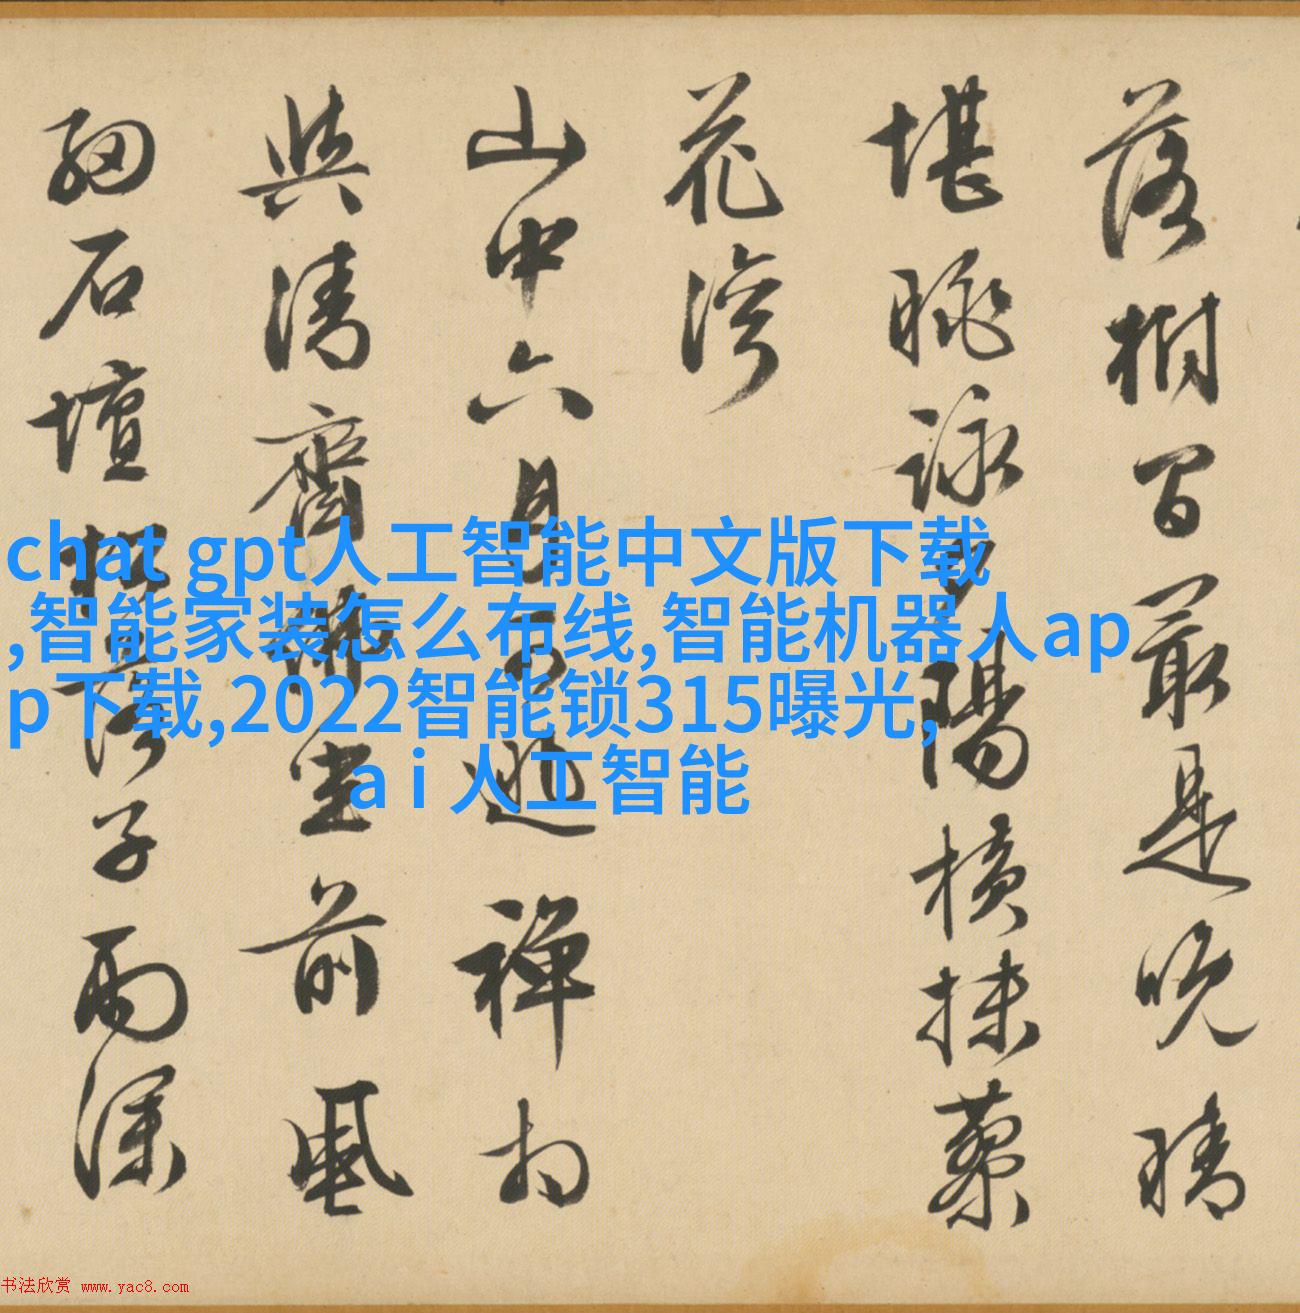 落樹間最是晚晴
堪眺詠夕陽橫抹蓼
花灣
山中六月禪相
與清齋坐前風
細石壇松落子雨
chat gpt人工智能中文版下载
,智能家装怎么布线,智能机器人ap
p下载,2022智能锁315曝光,
a i 人工智能
书法欣赏 www.yac8.com